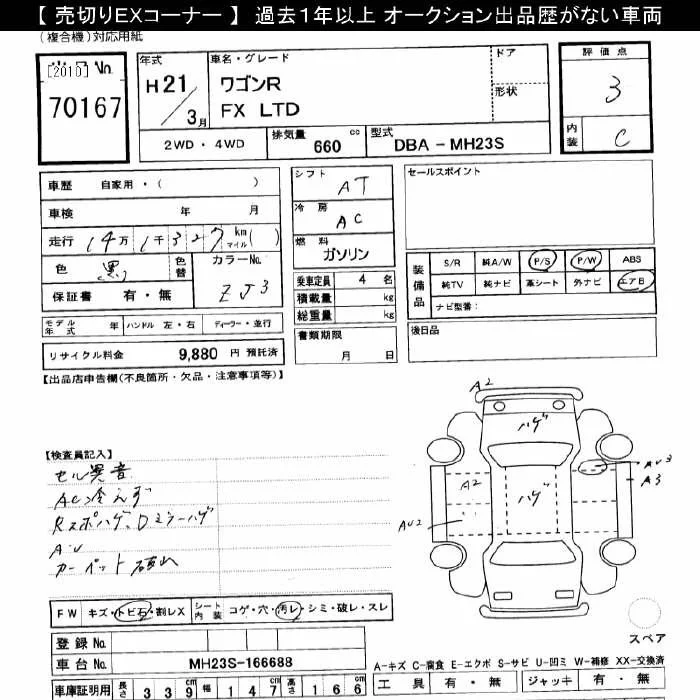 【 売切りEXコーナー 】 過去1年以上 オークション出品歴がない車両
(複合機)対応用紙
[2010] No.
70167
年式
H 21 / 3月
車名・グレード
ワゴンR
FX LTD
ドア
形状
評価点
3
内装
C
2WD ・ 4WD
排気量 660 cc
型式 DBA - MH23S
車歴 自家用・( )
車検 年 月
走行 14万 1千 3 2 7 km マイル( )
色 黒 色替
カラーNo.
ZJ3
保証書 有・無
シフト
AT
冷房
AC
燃料
ガソリン
乗車定員 4 名
積載量 kg
総重量 kg
セールスポイント
装備品
S/R 純A/W P/S P/W ABS
純TV 純ナビ 革シート 外ナビ エアB
ナビ型番:
モデル年式 年 ハンドル 左・右 ディーラー・並行
リサイクル料金 9,880 円 預託済
書類期限
月 日
後日品
【出品店申告欄(不良箇所・欠品・注意事項等)】
【検査員記入】
セル異音
AC冷えず
Rスポハゲ、Dミラーハゲ
A・U
カーペット破れ
A2
ハゲ
A2
ハゲ
AU3
A3
AU2
FW キズ・トビ石・割レX シート内装 コゲ・穴・汚レ・シミ・破レ・スレ
登録No.
車台No. MH23S-166688
スペア
A-キズ C-腐食 E-エクボ S-サビ U-凹ミ W-補修 XX-交換済
車庫証明用 長さ 3 3 9 cm 幅 1 4 7 cm 高さ 1 6 6 cm
工具 有・無 ジャッキ 有・無